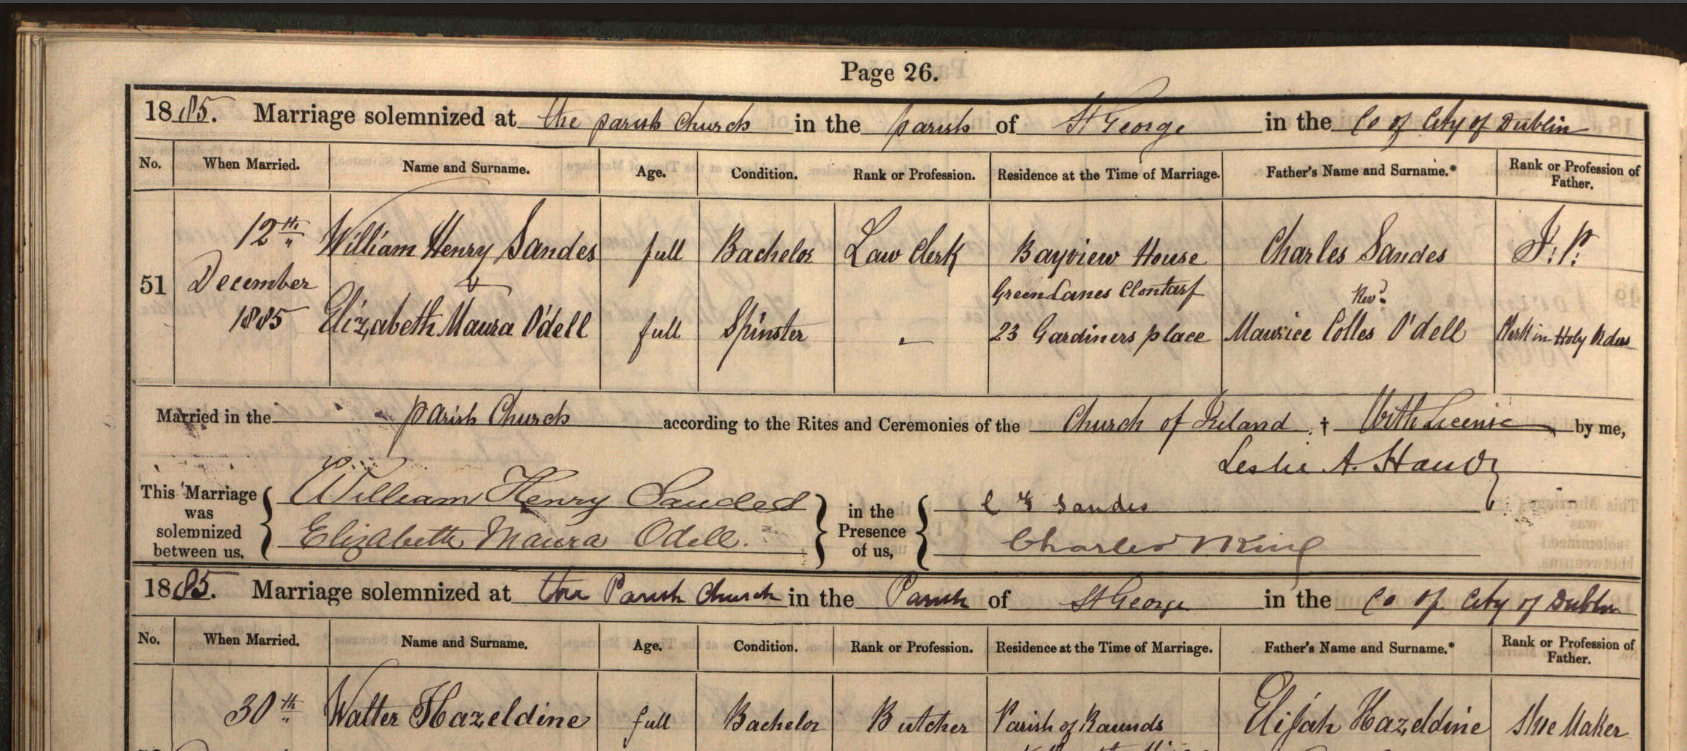 Page 26.
1885. Marriage solemnized at the parish church in the parish of St George in the Co of City of Dublin
No. When Married. Name and Surname. Age. Condition. Rank or Profession. Residence at the Time of Marriage. Father's Name and Surname.* Rank or Profession of Father.
51 12th December 1885 William Henry Sandes full Bachelor Law Clerk Bayview House Green Lanes Clontarf Charles Sandes J.P.
& Elizabeth Maura O'dell full Spinster " 23 Gardiners place Revd. Maurice Colles O'dell Clerk in Holy Orders
Married in the parish Church according to the Rites and Ceremonies of the Church of Ireland † With License by me,
Leslie A. Handy
This Marriage was solemnized between us, { William Henry Sandes } in the Presence of us, { Sandes
Elizabeth Maura Odell. Charles King
1885. Marriage solemnized at the Parish Church in the Parish of St George in the Co of City of Dublin
No. When Married. Name and Surname. Age. Condition. Rank or Profession. Residence at the Time of Marriage. Father's Name and Surname.* Rank or Profession of Father.
30th Walter Hazeldine full Bachelor Butcher Parish of Raunds Elijah Hazeldine Shoe Maker